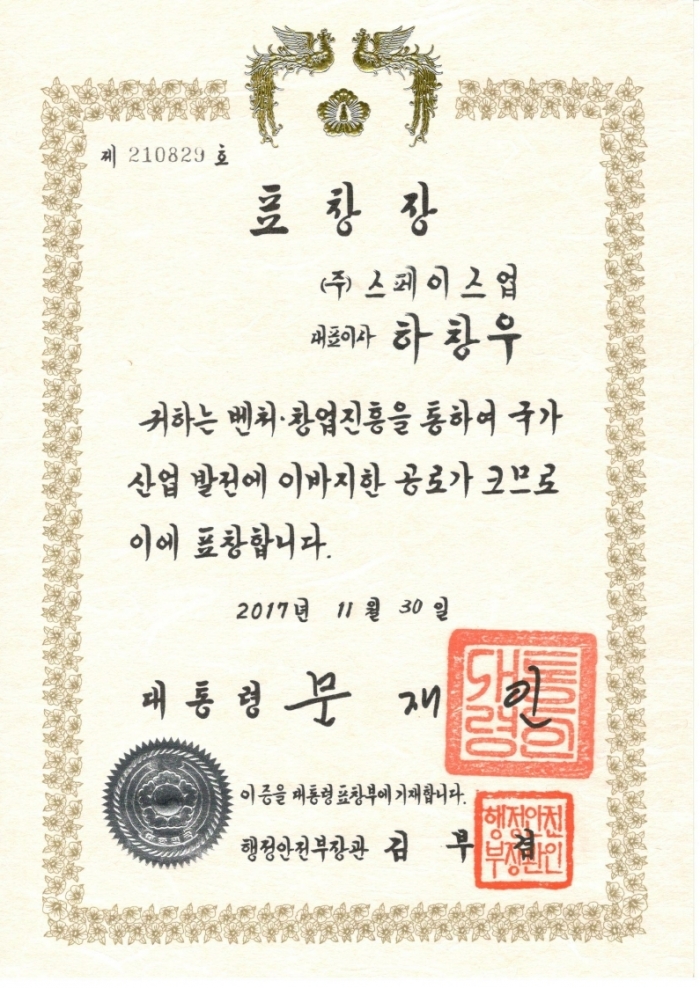 제 210829 호
표 창 장
(주) 스페이스업
대표이사 하창우
귀하는 벤처·창업진흥을 통하여 국가
산업 발전에 이바지한 공로가 크므로
이에 표창합니다.
2017년 11월 30일
대통령 문재인
대통령의인
이 증을 대통령표창부에 기재합니다.
행정안전부장관 김부겸
행정안전
부장관인
대한민국